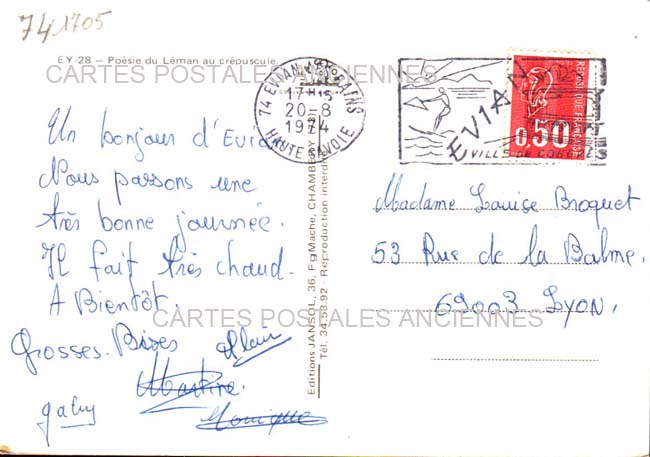 741705
EY-28 — Poésie du Léman au crépuscule.
CARTES POSTALES ANCIENNES
74 EVIAN LES BAINS
17H15
20-8
1974
HAUTE SAVOIE
EVIAN
VILLE DE
0,50
REPUBLIQUE FRANCAISE
Un bonjour d'Evian
Nous passons une
très bonne journée.
Il fait très chaud.
A Bientôt.
Grosses. Bises
Alain
Martine.
gaby
Monique
Editions JANSOL, 36, Fg Mache, CHAMBERY
Tél. 34.53.92 - Reproduction interdite
Madame Louise Broquet
53 Rue de la Balme.
69003 Lyon.
CARTES POSTALES ANCIENNES